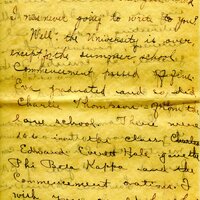 I was never going to write to you?
Well! the University is over
except for the summer school.
Commencement passed off fine
Eva graduated and so did
Charlie Thompson from the
Law school. There were
160 in the class. Charles
Edward Everett Hale gave the
Phi Beta Kappa and the
Commencement orations. I
wish you